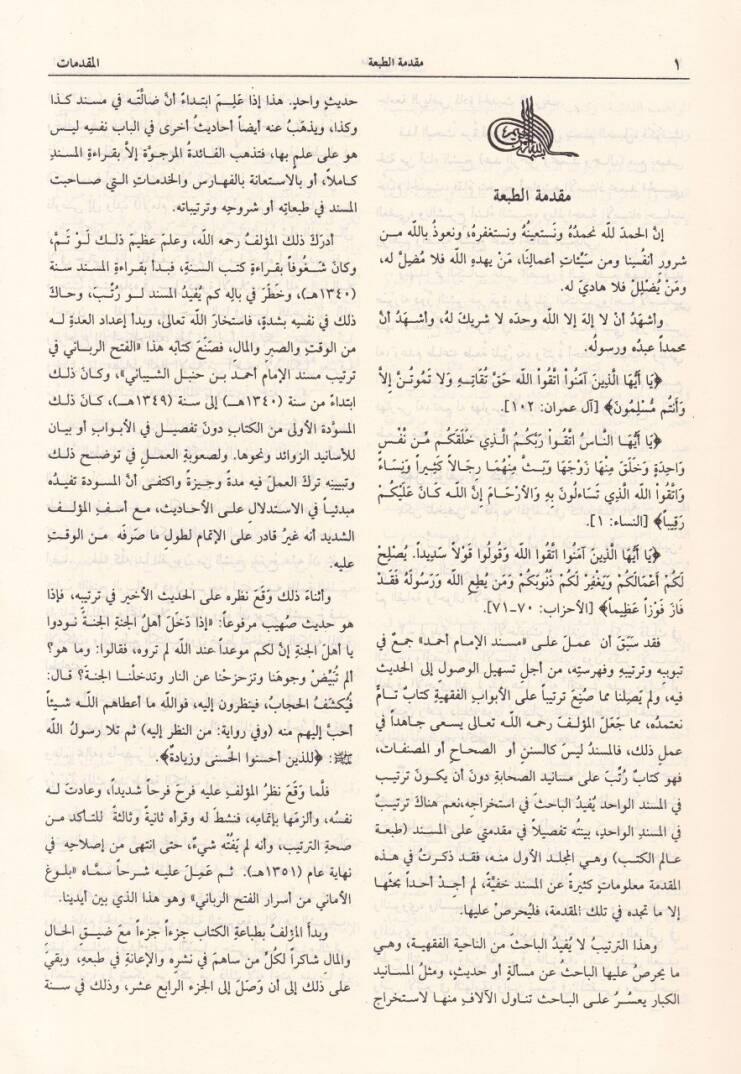 ١ مقدمة الطبعة المقدمات
مقدمة الطبعة
إنَّ الحمدَ للَّه نحمدُهُ ونَستعينُهُ ونستغفرُه، ونعوذُ باللَّه مـن
شرورِ أنفُسِنا ومن سَيِّئاتِ أعمالِنا، مَنْ يهدهِ اللَّه فلا مُضلَّ له،
ومَنْ يُضْلِلْ فلا هاديَ له.
وأشهَدُ أنْ لا إلهَ إلا اللَّه وحدَه لا شريكَ لهُ، وأشهَدُ أنَّ
محمداً عبدُه ورسولُه.
﴿يَا أَيُّهَا الَّذِينَ آمَنُوا اتَّقُوا اللَّه حَقَّ تُقَاتِـهِ وَلا تَمُوتُـنَّ إِلاَّ
وَأَنتُم مُّسْلِمُونَ﴾ [آل عمران: ١٠٢].
﴿يَـا أَيُّهَـا النَّـاسُ اتَّقُـوا رَبَّكُـمُ الَّـذِي خَلَقَكُـم مِّـن نَّفْـسٍ
وَاحِدَةٍ وَخَلَقَ مِنْهَا زَوْجَهَا وَبَثَّ مِنْهُمَـا رِجَـالاً كَثِيراً وَنِسَـاءً
وَاتَّقُوا اللَّه الَّذِي تَسَاءلُونَ بِهِ وَالأرْحَامَ إِنَّ اللَّـه كَـانَ عَلَيْكُـمْ
رَقِيباً﴾ [النساء: ١].
﴿يَـا أَيُّهَـا الَّذِينَ آمَنُـوا اتَّقُـوا اللَّه وَقُولُوا قَوْلاً سَدِيداً. يُصْلِحْ
لَكُمْ أَعْمَالَكُمْ وَيَغْفِرْ لَكُمْ ذُنُوبَكُمْ وَمَن يُطِعِ اللَّه وَرَسُولَهُ فَقَـدْ
فَازَ فَوْزاً عَظِيماً﴾ [الأحزاب: ٧٠-٧١].
فقد سَبَقَ أن عمـلَ علـى «مسـند الإمـام أحمد» جمـعٌ في
تبويبِه وترتيبِه وفهرستِه، من أجلِ تسهيل الوصولِ إلى الحديث
فيه، ولم يَصِلِنا مما صُنِعَ ترتيباً على الأبوابِ الفقهيةِ كتابٌ تـامٌّ
نعتمدُه، مما جَعَلَ المؤلـفَ رحمـه اللَّـه تعالى يسـعى جـاهداً في
عملِ ذلك، فالمسندُ ليسَ كالسننِ أو الصحاحِ أو المصنفات،
فهو كتابٌ رُتِّبَ على مسانيد الصحابةِ دونَ أن يكـونَ ترتيـب
في المسند الواحد يُفيدُ الباحثَ في استخراجِه،نعم هناكَ ترتيبٌ
في المسندِ الواحدِ، بينتُه تفصيلاً في مقدمتي على المسند (طبعة
عالم الكتب) وهي المجلد الأول منه، فقد ذكرتُ في هـذه
المقدمة معلوماتٍ كثيرةً عن المسند خفيَّة، لم أجدْ أحداً بحثَهـا
إلا ما تجده في تلك المقدمة، فليُحرصْ عليها.
وهذا الترتيبُ لا يُفيدُ الباحثَ من الناحية الفقهيـة، وهـي
ما يحرصُ عليها الباحثُ عن مسألةٍ أو حديثٍ، ومثلُ المسانيد
الكبار يعسُـرُ علـى الباحث تناول الآلافِ منهـا لاستخراج
حديثٍ واحدٍ. هذا إذا عَلِـمَ ابتـداءً أنَّ ضالَّتَـه في مسند كـذا
وكذا، ويذهَبُ عنه أيضاً أحاديثُ أخرى في البابِ نفسِه ليـس
هو على علمٍ بها، فتذهب الفائـدةُ المرجـوَّة إلاَّ بقـراءةِ المسـندِ
كـاملاً، أو بالاستعانةِ بالفهارس والخدمـاتِ التـي صـاحبت
المسند في طبعاتِه أو شروحِه وترتيباتِه.
أدرَكَ ذلك المؤلفُ رحمه اللَّه، وعلـم عظيـمَ ذلـك لَـوْ تَـمَّ،
وكانَ شَـغُوفاً بقـراءةِ كتـب السـنةِ، فبـدأ بقـراءةِ المسندِ سنة
(١٣٤٠هـ)، وخَطَرَ في بالِه كم يُفيدُ المسند لـو رُتِّـبَ، وحـاكَ
ذلك في نفسِه بشدةٍ، فاستخارَ اللَّه تعالى، وبدأ إعداد العدةِ لـه
من الوقتِ والصبرِ والمالِ، فصَنَعَ كتابَه هذا «الفتح الرباني في
ترتيب مسند الإمام أحمدَ بـن حنبل الشيباني»، وكـانَ ذلـك
ابتداءً من سنة (١٣٤٠هـ) إلى سنة (١٣٤٩هـ)، كـانَ ذلـك
المسوَّدة الأولى من الكتاب دونَ تفصيل في الأبـوابِ أو بيـان
للأسانيدِ الزوائد ونحوها. ولصعوبةِ العمـلِ في توضيـح ذلـك
وتبيينِه تركَ العملَ فيه مدةً وجيزةً واكتفى أنَّ المسودة تفيـدُه
مبدئياً في الاستدلالِ علـى الأحاديث، مـع أسـفِ المؤلـف
الشديد أنه غيرُ قادر على الإتمامِ لطولِ ما صَرَفَه مـن الوقـتِ
عليه.
وأثناءَ ذلك وَقَعَ نظره على الحديث الأخيرِ في ترتيبِه، فإذا
هو حديث صُهيب مرفوعاً: «إذا دَخَلَ أهلُ الجنةِ الجنةَ نودوا
يا أهلَ الجنةِ إنَّ لكم موعداً عند اللَّه لم تروه، فقالوا: وما هو؟
ألم تُبَيِّضْ وجوهَنا وتزحزحْنا عن النارِ وتدخلْنـا الجنـةَ؟ قـال:
فيُكشَفُ الحجابُ، فينظرون إليه، فواللَّه ما أعطاهم اللَّـه شـيئاً
أحبَّ إليهم منه (وفي رواية: من النظر إليه) ثم تلا رسولُ اللَّه
ﷺ: ﴿للذين أحسنوا الحُسنى وزيادةٌ﴾.
فلَّما وَقَعَ نظرُ المؤلف عليه فرحَ فرحـاً شـديداً، وعـادت لـه
نفسُه، وألزمَها بإتمامِه، فنشطَ له وقرأه ثانيةً وثالثةً للتأكد مـن
صحةِ الترتيب، وأنه لم يَفُتْه شيءٌ، حتى انتهى من إصلاحِه في
نهاية عام (١٣٥١هـ). ثـم عَمِـلَ عليـه شـرحاً سمَّـاه «بلـوغ
الأماني من أسرار الفتح الرباني» وهو هذا الذي بين أيدينا.
وبدأ المؤلفُ بطباعةِ الكتاب جزءاً جزءاً معَ ضيـقِ الحـالِ
والمالِ شاكراً لكُلِّ من ساهمَ في نشرِه والإعانةِ في طبعهِ، وبقيَ
على ذلك إلى أن وَصَلَ إلى الجزء الرابع عشر، وذلك في سـنة